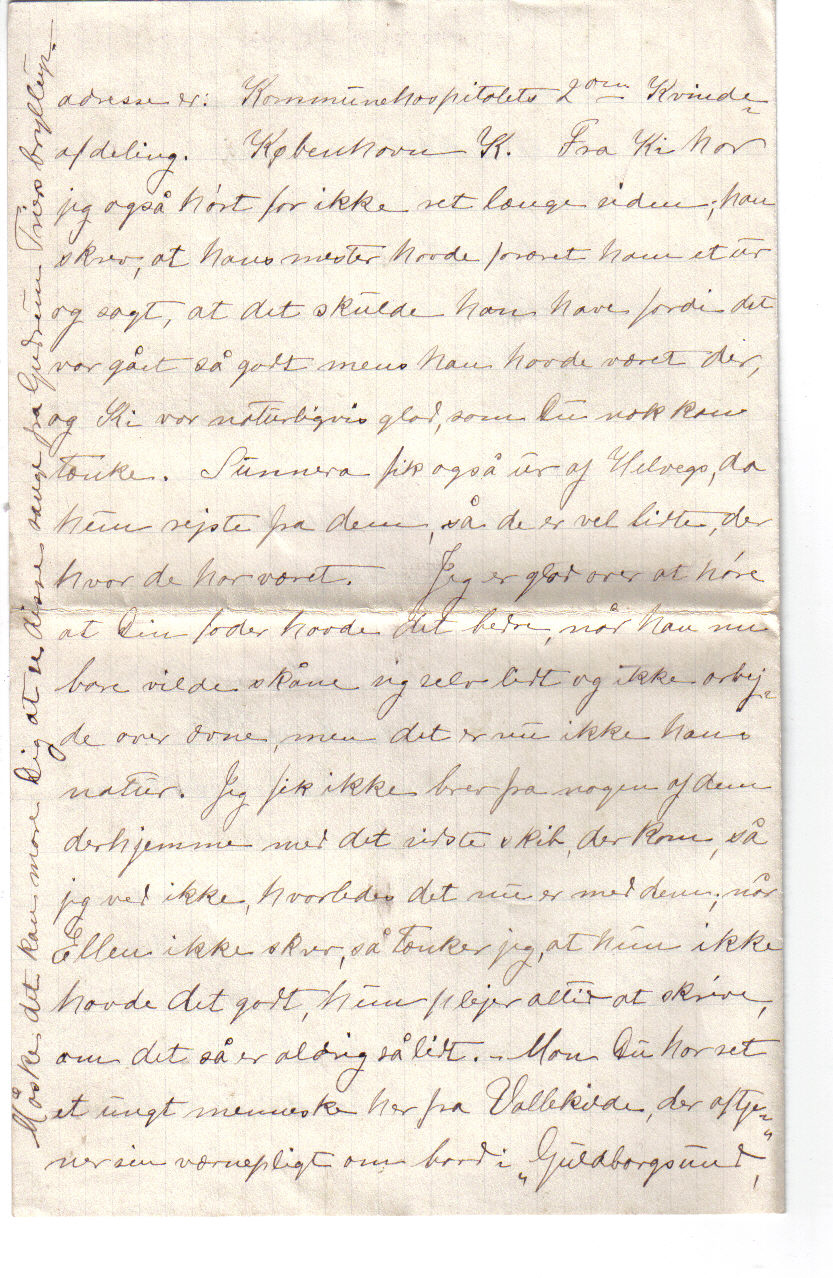 adresse er: Kommunehospitalets 2den Kvinde-
afdeling. København K. Fra Ki har
jeg også hört for ikke ret længe siden; han
skrev, at hans mester havde foræret ham et ur
og sagt, at det skulde han have fordi det
var gået så godt mens han havde været der,
og Ki var naturligvis glad, som Du nok kan
tænke. Sunneva fik også ur af Helvegs, da
hun rejste fra dem, så de er vel lidte, der
hvor de har været. Jeg er glad over at höre
at Din fader havde det bedre, når han nu
bare vilde skåne sig selv lidt og ikke arbej-
de over ævne, men det er nu ikke hans
natur. Jeg fik ikke brev fra nogen af dem
derhjemme med det sidste skib, der kom, så
jeg ved ikke, hvorledes det nu er med dem; når
Ellen ikke skrev, så tænker jeg, at hun ikke
havde det godt, hun plejer altid at skrive,
om det så er aldrig så lidt. - Mon Du har set
et ungt menneske her fra Vallekilde, der aftje-
ner sin værnepligt om bord i „Guldborgsund",
Måske det kan more Dig at se disse sange fra Gudrun Triers bryllup.